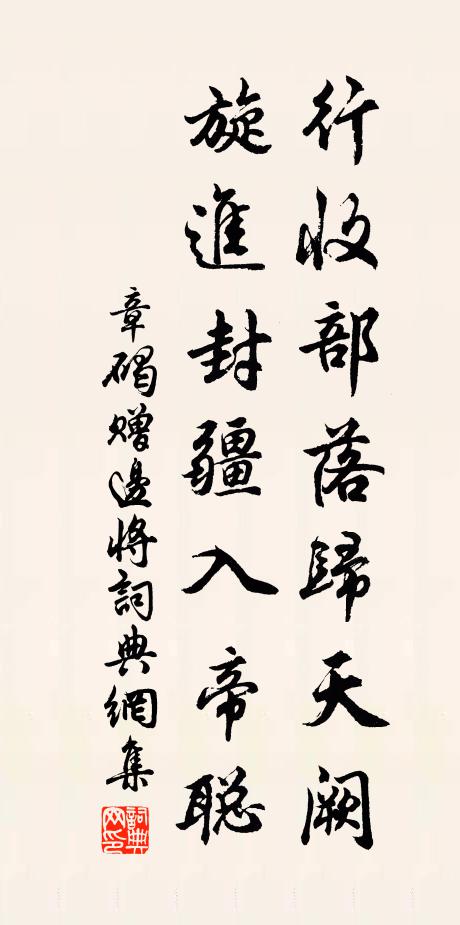 行收部落歸天闕
旋進封疆入帝聪
章碣贈邊將詞典網集
詞典網印